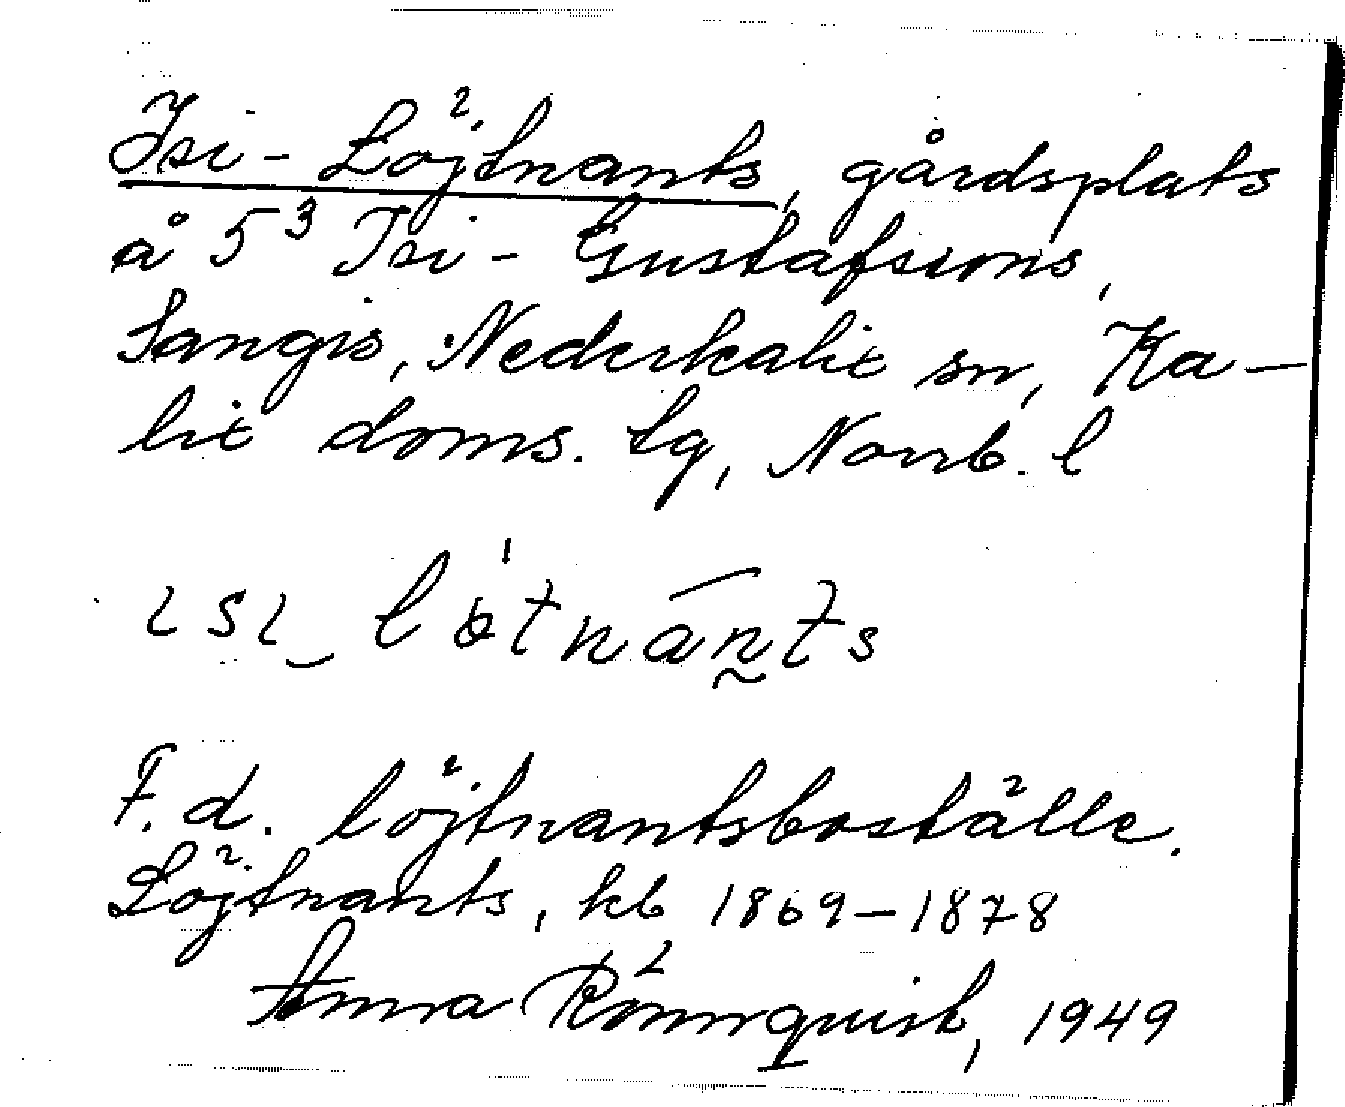 Isi-Löjtnants, gårdsplats
å 5³ Isi-Gustafssons,
Sangis, Nederkalix sn, Ka-
lix doms. tg, Norrb. l
ısı_ lòtnānts
F. d. löjtnantsboställe.
Löjtnants, kb 1869-1878
Anna Rönnquist, 1949